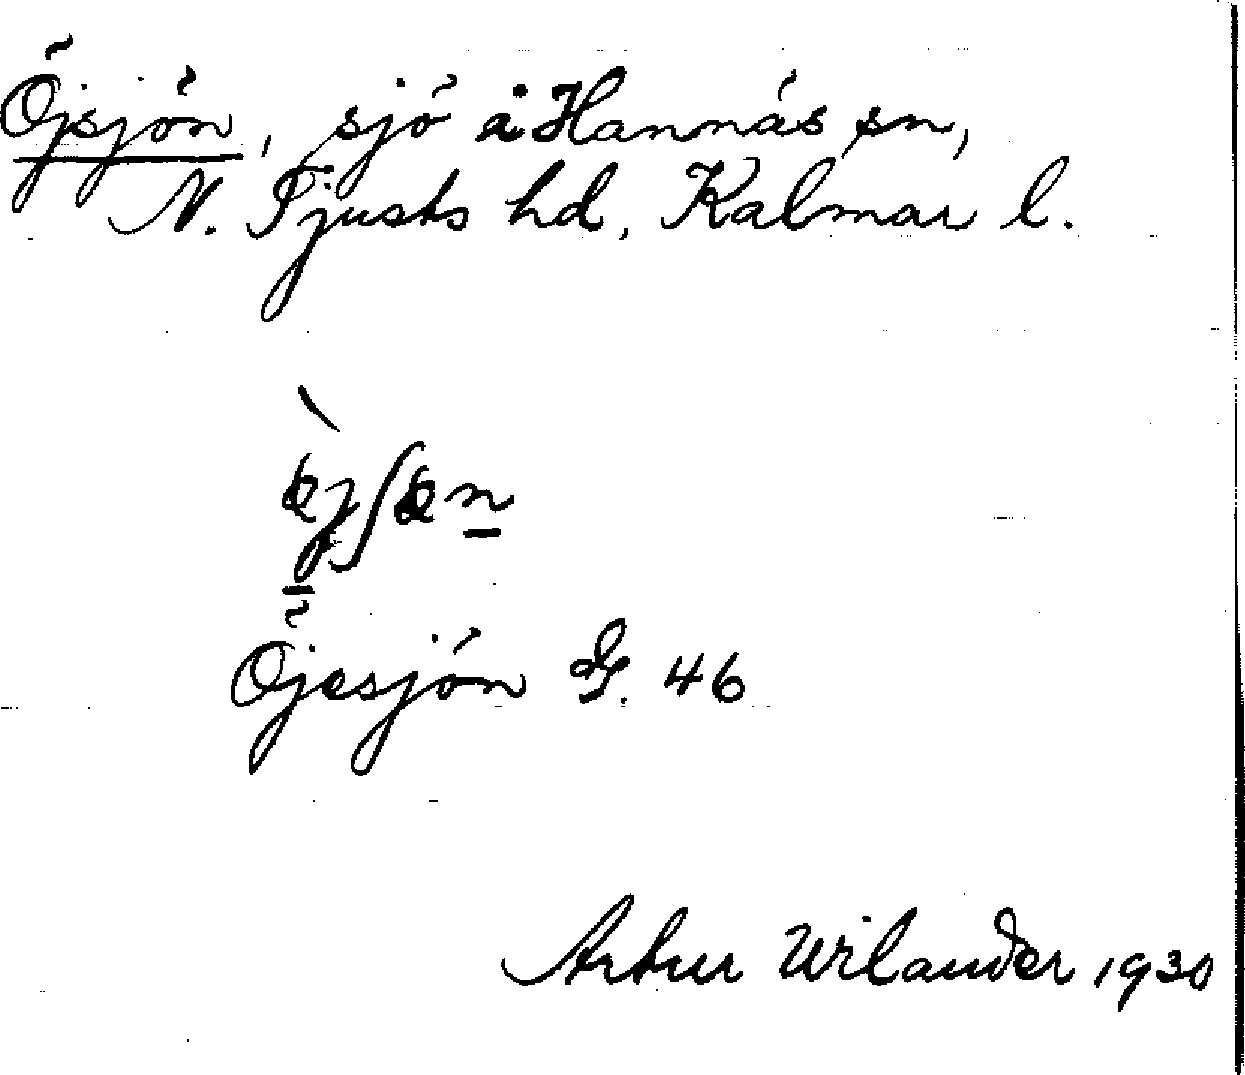 Öjsjön, sjö å Hannäs sn,
N. Tjusts hd, Kalmar l.
Öjesjön G. 46
Artur Wilander 1930